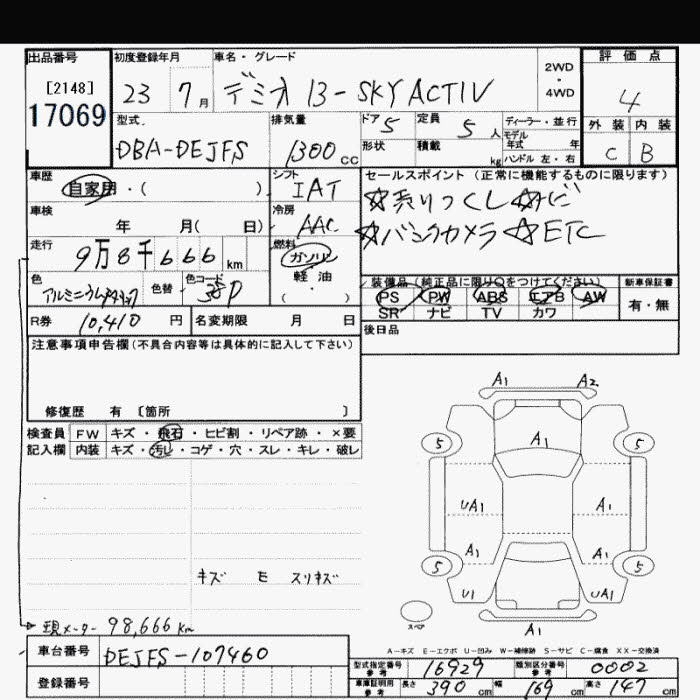 出品番号 初度登録年月 車名・グレード 2WD・4WD 評価点
[2148] 23 7月 デミオ 13-SKYACTIV 4
17069
型式 排気量 ドア 5 定員 5人 ディーラー・並行 外装 内装
モデル年式 年
DBA-DEJFS 1300cc 形状 積載 kg ハンドル 左・右 C B
車歴 シフト セールスポイント (正常に機能するものに限ります)
自家用・( ) IAT ☆売りつくし☆ナビ
車検 冷房
年 月( 日) AAC ☆バックカメラ ☆ETC
走行 燃料
9万8千666km ガソリン
軽油
( )
色 色替 色コード 装備品(純正品に限り○をつけてください) 新車保証書
38P PS PW ABS エアB AW 有・無
SR ナビ TV カワ
R券 10,410円 名変期限 月 日 後日品
注意事項申告欄(不具合内容等は具体的に記入して下さい)
修復歴 有 〔箇所 〕
検査員 FW キズ・飛石・ヒビ割・リペア跡・×要
記入欄 内装 キズ・汚し・コゲ・穴・スレ・キレ・破レ
A1 A2
A1
5 5
UA1 A1
A1 A1
5 5
U1 UA1
A1
スペア
キズ E スリキズ
現メーター 98,666km
A-キズ E-エクボ U-凹み W-補修跡 S-サビ C-腐食 XX-交換済
車台番号 DEJFS-107460
型式指定番号 参考 16929 類別区分番号 参考 0002
登録番号
車庫証明用 参考 長さ 390cm 幅 169cm 高さ 147cm